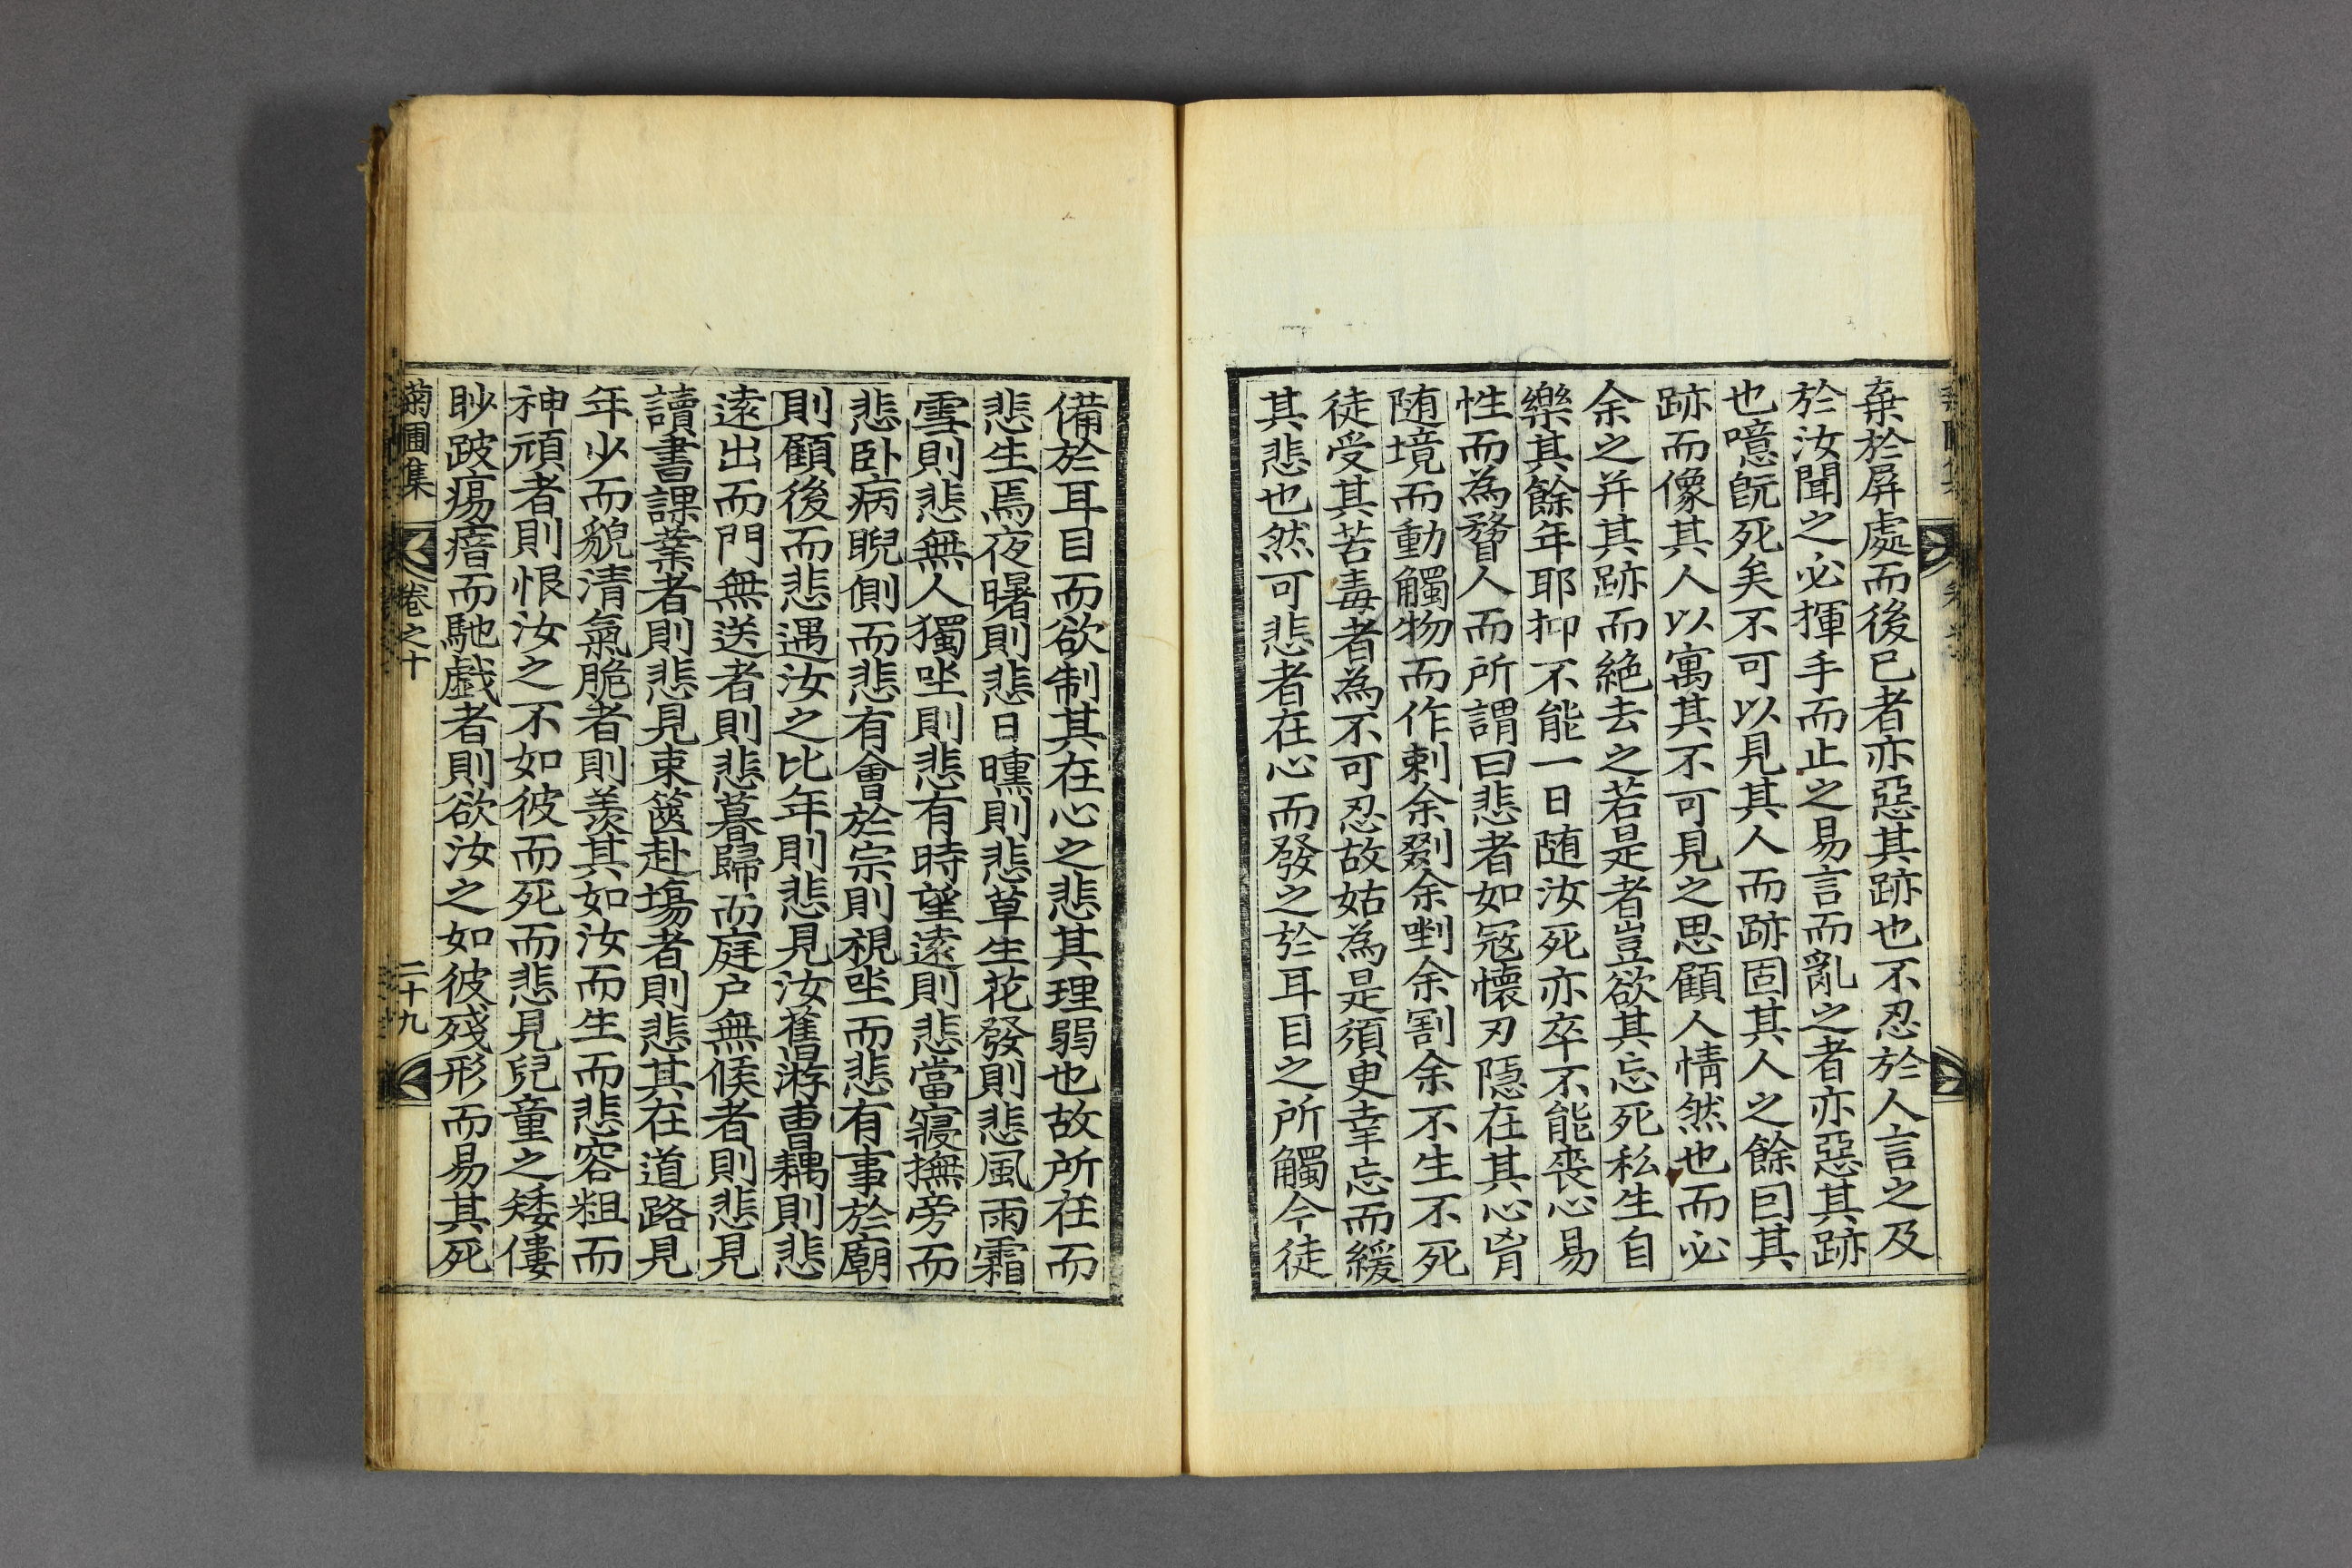 棄於屏處而後已者亦惡其跡也不忍於人言之及
於汝聞之必揮手而止之易言而亂之者亦惡其跡
也噫旣死矣不可以見其人而跡固其人之餘因其
跡而像其人以寓其不可見之思顧人情然也而必
余之并其跡而絶去之若是者豈欲其忘死私生自
樂其餘年耶抑不能一日随汝死亦卒不能喪心易
性而為瞀人而所謂曰悲者如冦懷刃隱在其心胷
随境而動觸物而作刺余剟余剚余割余不生不死
徒受其苦毒者為不可忍故姑為是須臾幸忘而緩
其悲也然可悲者在心而發之於耳目之所觸今徒
備於耳目而欲制其在心之悲其理弱也故所在而
悲生焉夜曙則悲日曛則悲草生花發則悲風雨霜
雪則悲無人獨坐則悲有時望遠則悲當寢撫旁而
悲卧病睨側而悲有會於宗則視坐而悲有事於廟
則顧後而悲遇汝之比年則悲見汝舊游曹耦則悲
遠出而門無送者則悲暮歸而庭户無候者則悲見
讀書課業者則悲見束篋赴塲者則悲其在道路見
年少而貌清氣脆者則羨其如汝而生而悲容粗而
神頑者則恨汝之不如彼而死而悲見兒童之矮僂
眇跛瘍瘖而馳戱者則欲汝之如彼殘形而易其死
菊圃集
卷之十
二十九